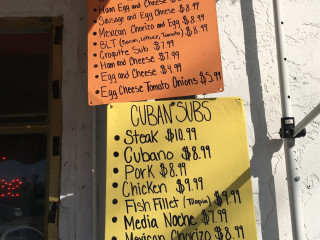 Ham Egg and Cheese $8.99
Sausage and Egg Cheese $8.99
Mexican Chorizo and Egg $8.99
• BLT (Bacon, Lettuce, Tomato) $8.99
• Croqueta Sub $7.99
• Ham and Cheese $7.99
• Egg and Cheese $4.99
• Egg Cheese Tomato Onions $5.99
CUBAN SUBS
• Steak $10.99
• Cubano $8.99
• Pork $8.99
• Chicken $9.99
• Fish Fillet (Tilapia) $9.99
• Media Noche $7.99
Mexican Chorizo $8.99